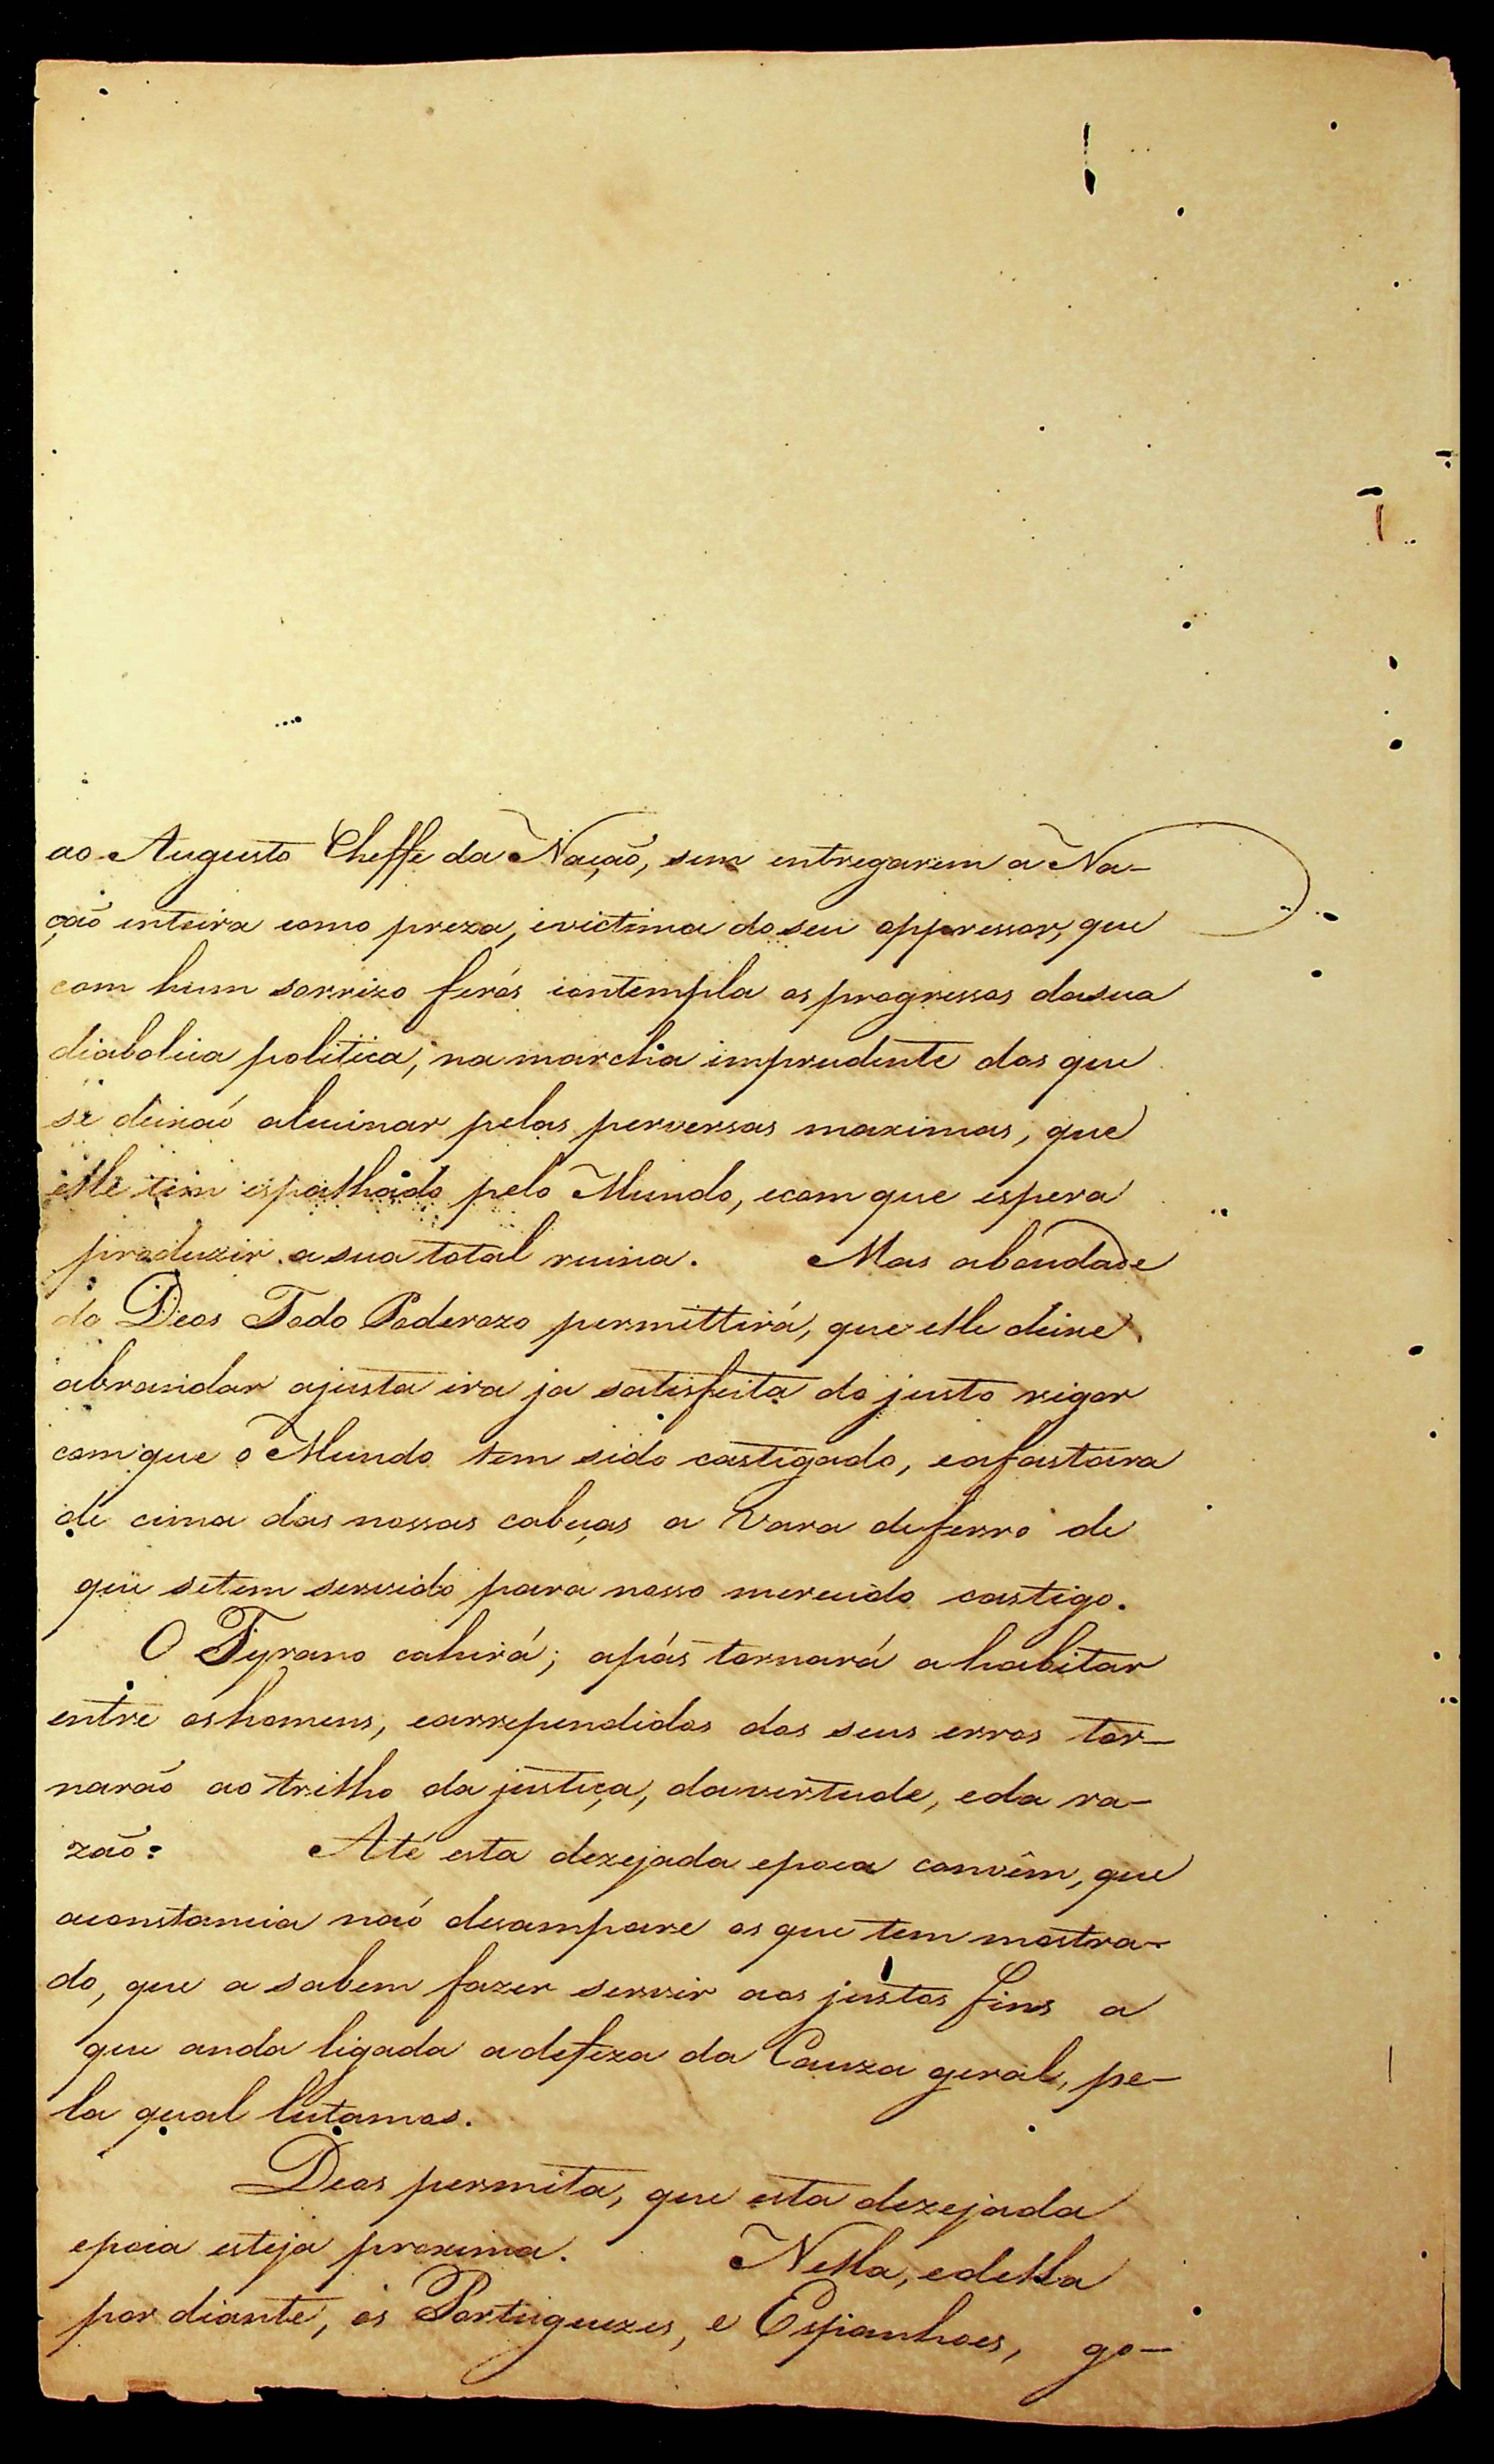 ao Augusto Cheffe da Nação, sem entregarem a Na-
ção inteira como preza, evictima do seu oppressor, que
com hum sorrizo ferós contempla os progressos dasua
diabolica politica, na marcha imprudente dos que
se deixaõ alucinar pelas perversas maximas, que
elle tem espalhado pelo Mundo, ecom que espera
produzir a sua total ruina. Mas abondade
do Deos Todo Poderozo permittirá, que elle deixe
abrandar ajusta ira ja satisfeita do justo rigor
com que o Mundo tem sido castigado, eafastara
de cima das nossas cabeças a vara deferro de
que setem servido para nosso merecido castigo.
O Tyrano cahirá; apás tornará ahabitar
entre oshomens, earrependidos dos seus erros tor-
naraõ ao trilho da justiça, davirtude, eda ra-
zaõ: Até esta dezejada epoca convêm, que
aconstancia naõ desampare os que tem mostra-
do, que a sabem fazer servir aos justos fins a
que anda ligada adefeza da Cauza geral, pe-
la qual lutamos.
Deos permita, que esta dezejada
epoca esteja proxima. Nella, edella
por diante, os Portuguezes, e Espanhoes, go-